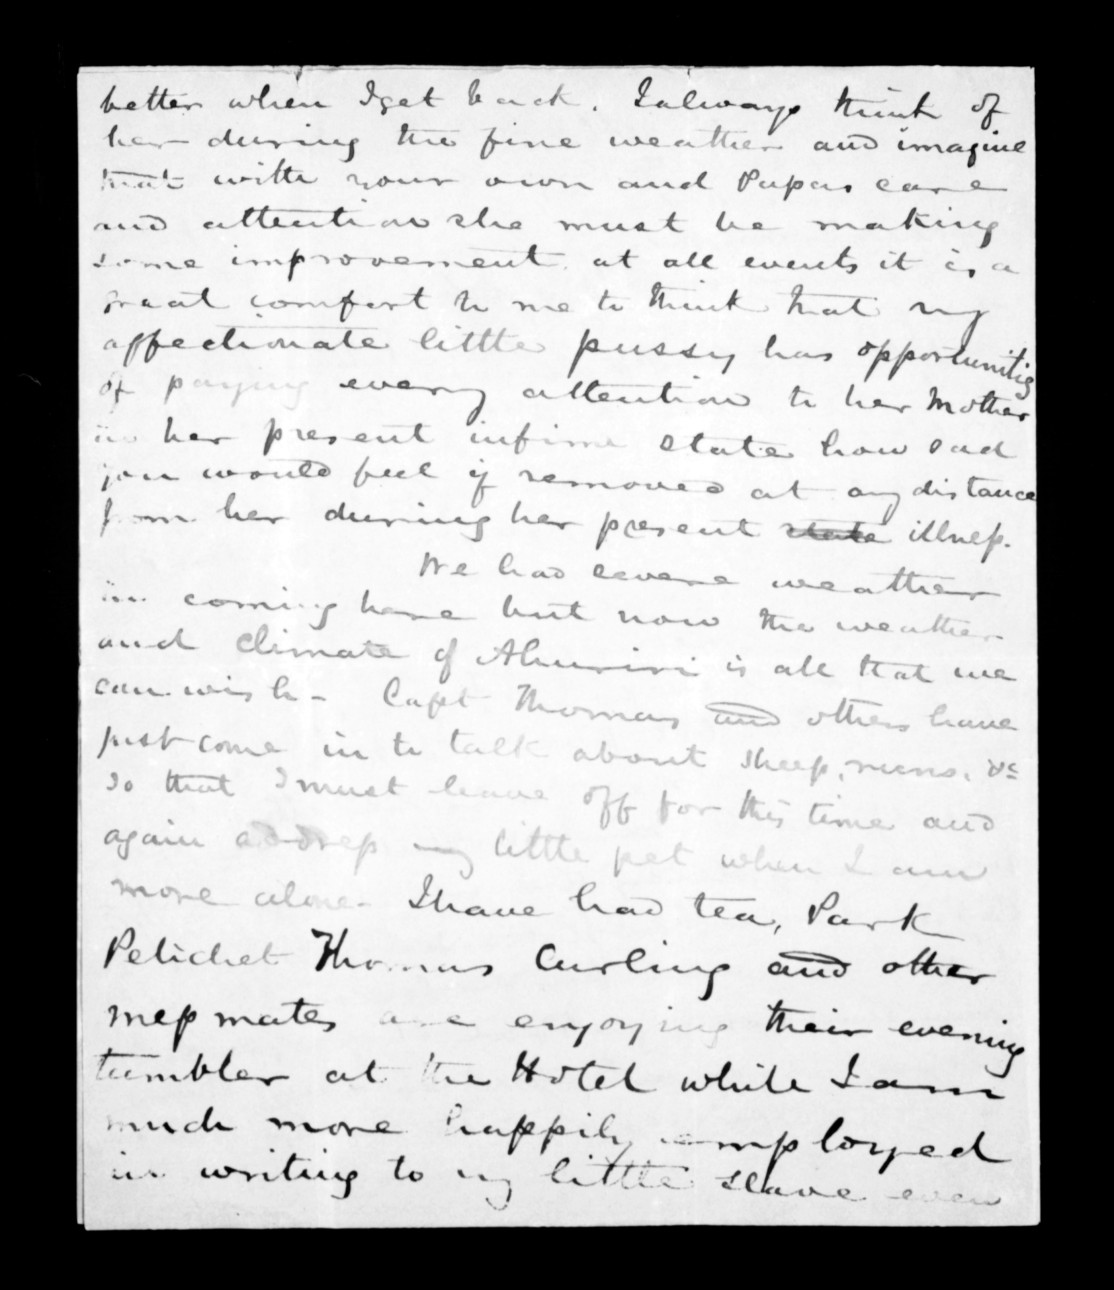 better when I get back. I always think of
her during the fine weather and imagine
that with your own and Papas care
and attention she must be making
some improvement. at all events it is a
great comfort to me to think that my
affectionate little pussy has opportunities
of paying every attention to her Mother
in her present infirm state how sad
you would feel if removed at any distance
from her during her present state illness.
We had severe weather
in coming here but now the weather
and climate of Ahuriri is all that we
can wish - Capt Thomas and others have
just come in to talk about sheep, runs, &c
so that I must leave off for this time and
again address my little pet when I am
more alone - I have had tea, Park
Pelichet Thomas Curling and other
messmates are enjoying their evening
tumbler at the Hotel while I am
much more happily employed
in writing to my little slave even